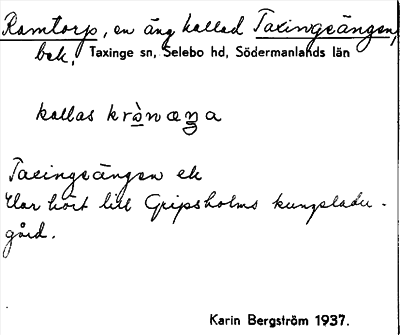 Ramtorp, en äng kallad Taxingeängen,
bek, Taxinge sn, Selebo hd, Södermanlands län
kallas
Taxingeängen ek
Har hört till Gripsholms kungsladu-
gård.
Karin Bergström 1937.